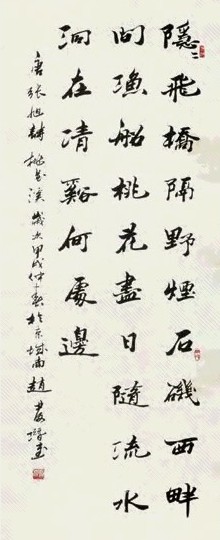 隱〻飛橋隔野煙石磯西畔
問漁船桃花盡日隨流水
洞在清谿何處邊
唐張旭詩桃花溪歲次甲戌仲於京城南趙書